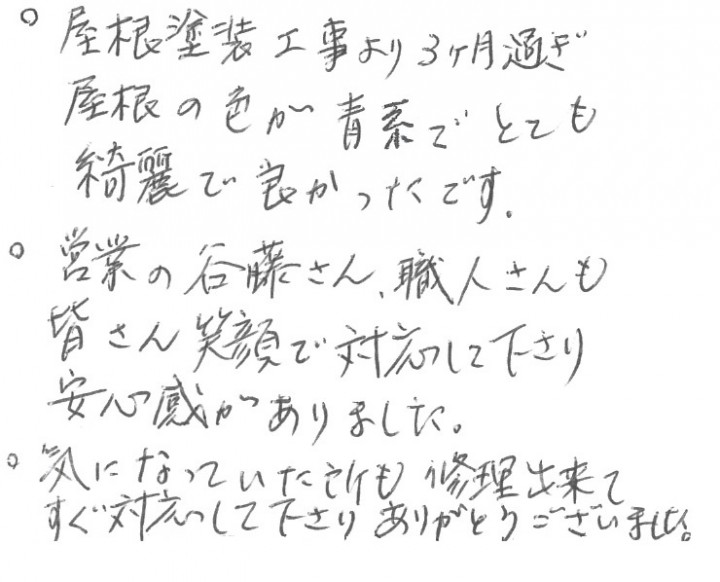 ○ 屋根塗装工事より3ヶ月過ぎ
屋根の色が青系でとても
綺麗で良かったです.
○ 営業の谷藤さん、職人さんも
皆さん笑顔で対応して下さり
安心感がありました。
○ 気になっていた所も修理出来て
すぐ対応して下さりありがとうございました。